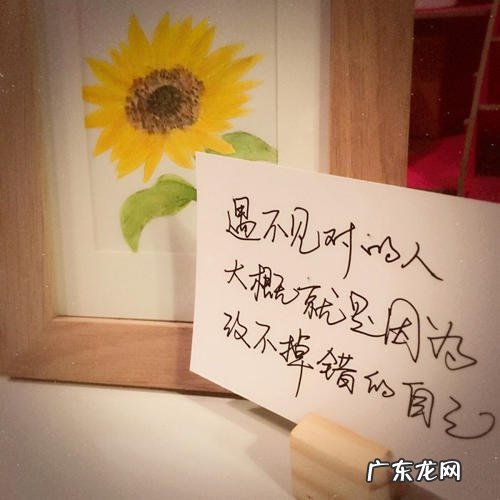 遇不见对的人
大概就是因为
改不掉错的自己
广东龙网